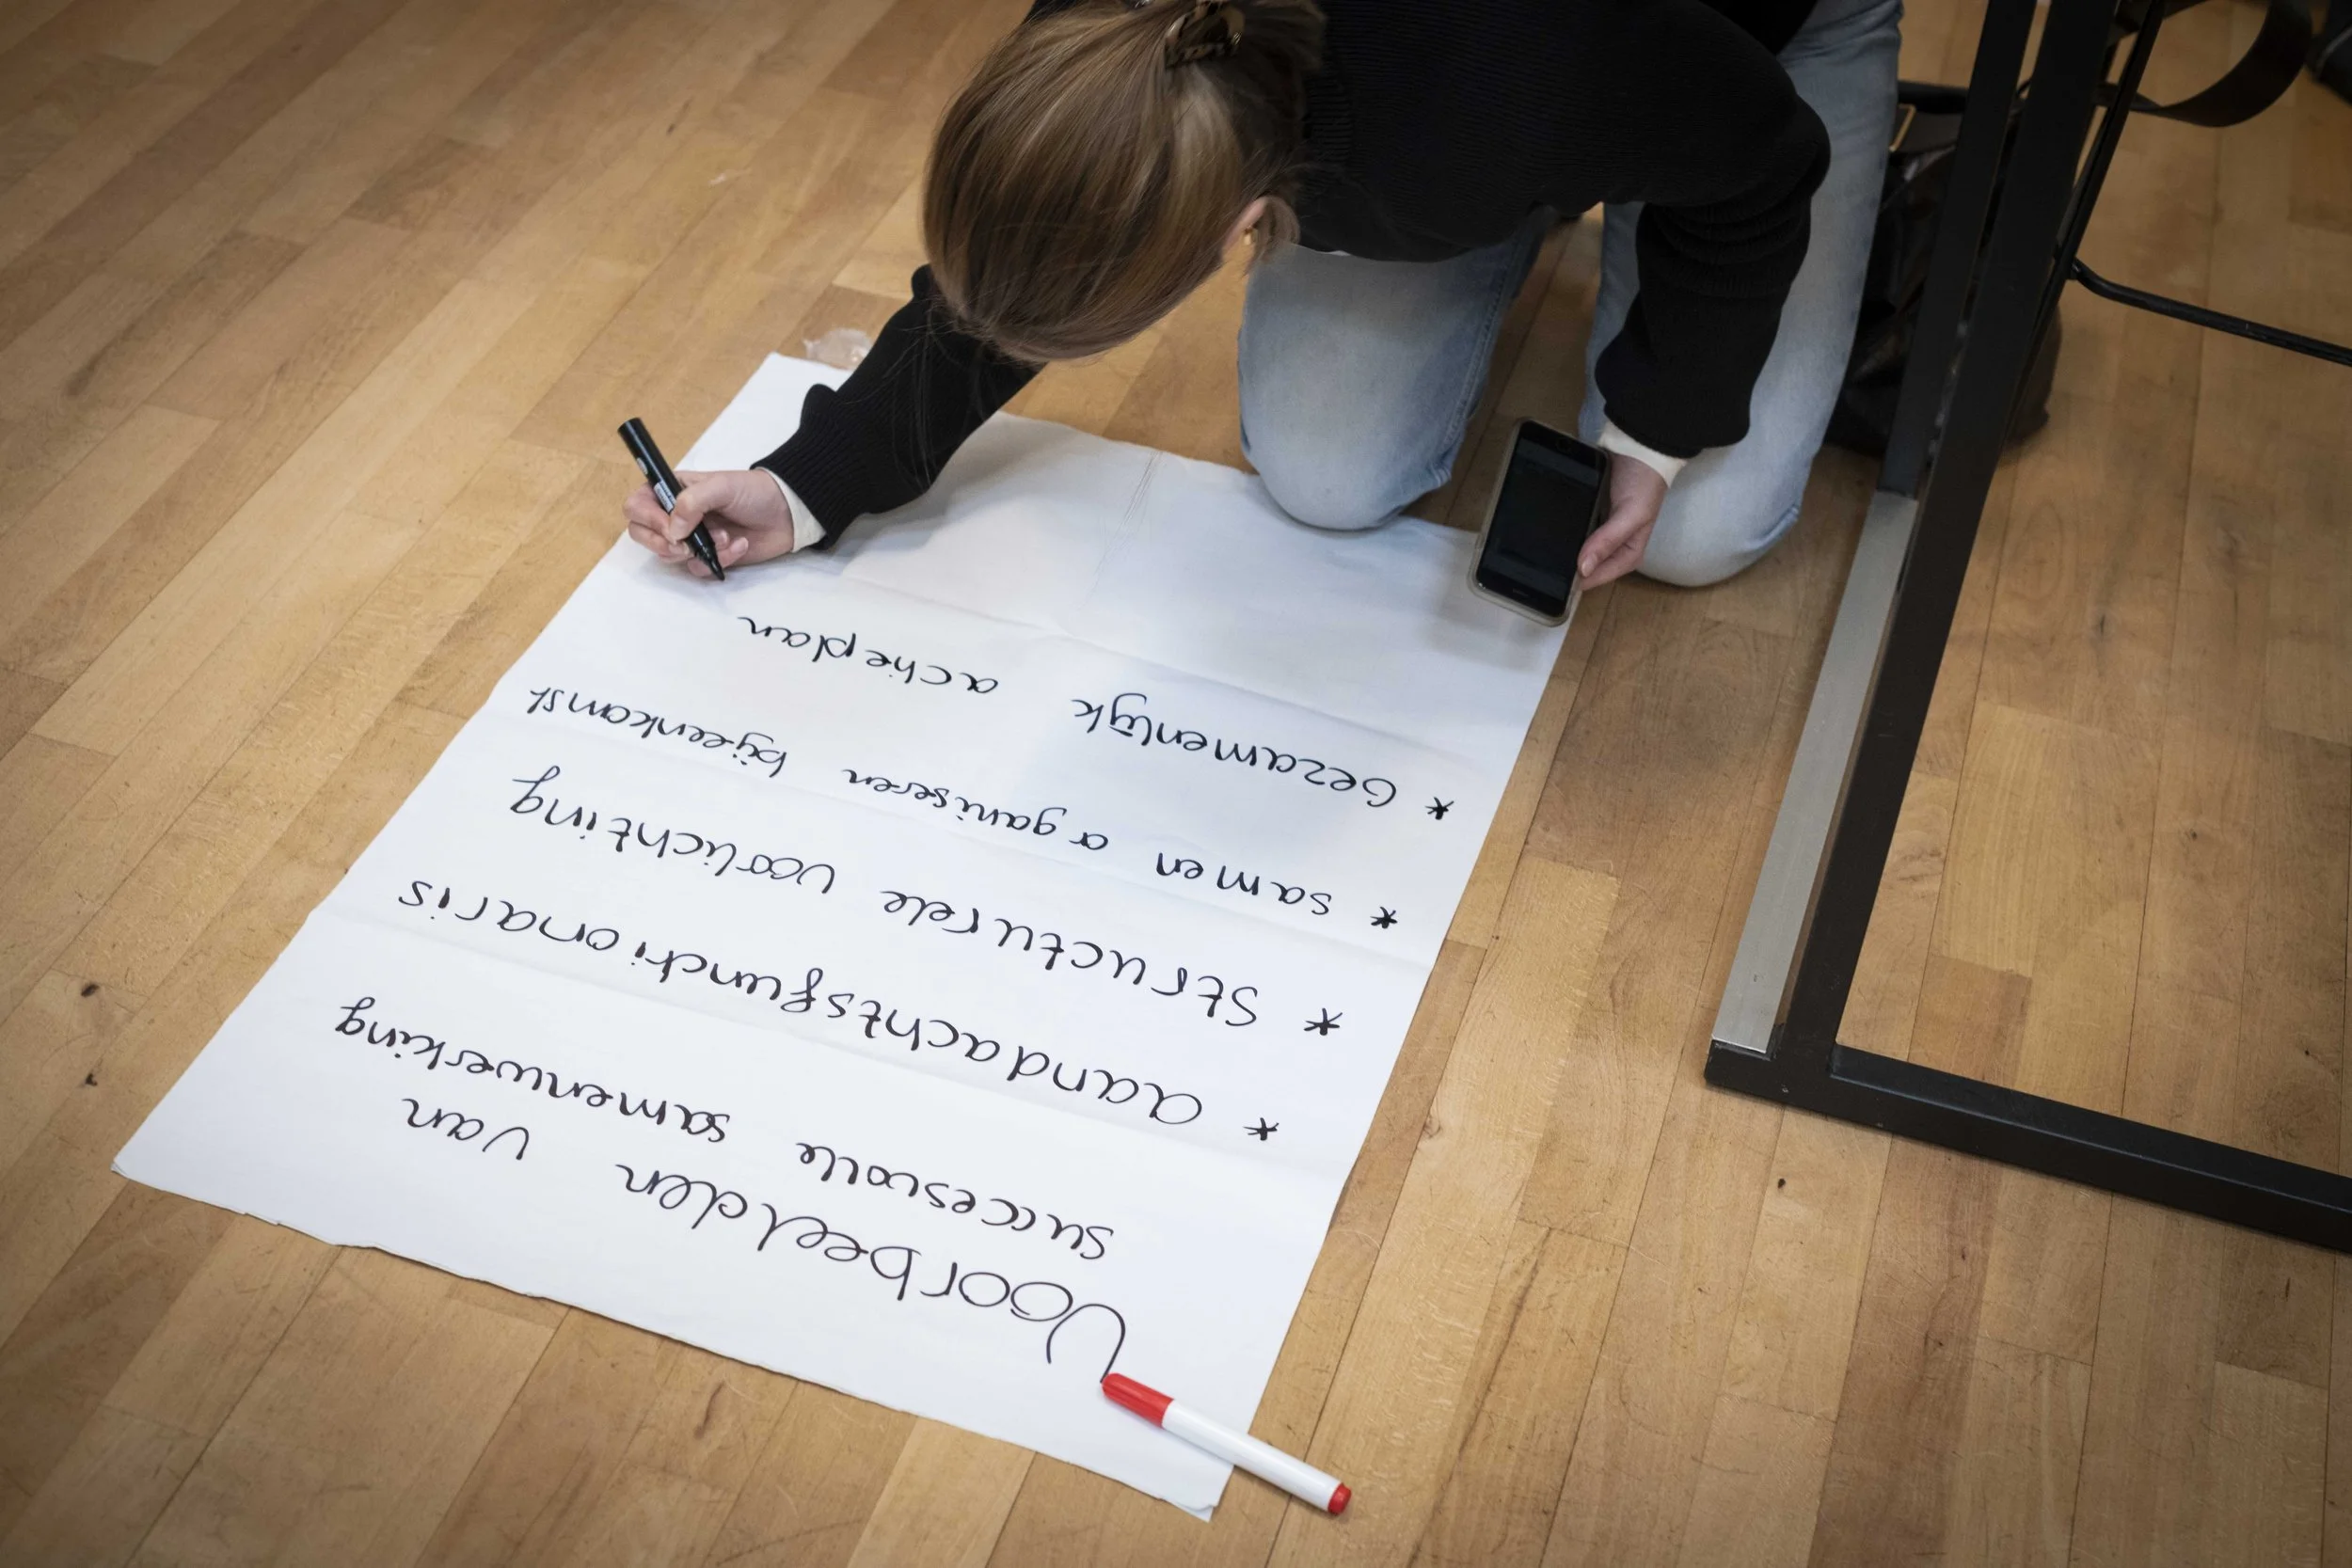 Voorbeelden van
succesvolle samenwerking
* aandachtsfunctionaris
* Structurele voorlichting
* samen organiseren bijeenkomst
* Gezamenlijk actieplan